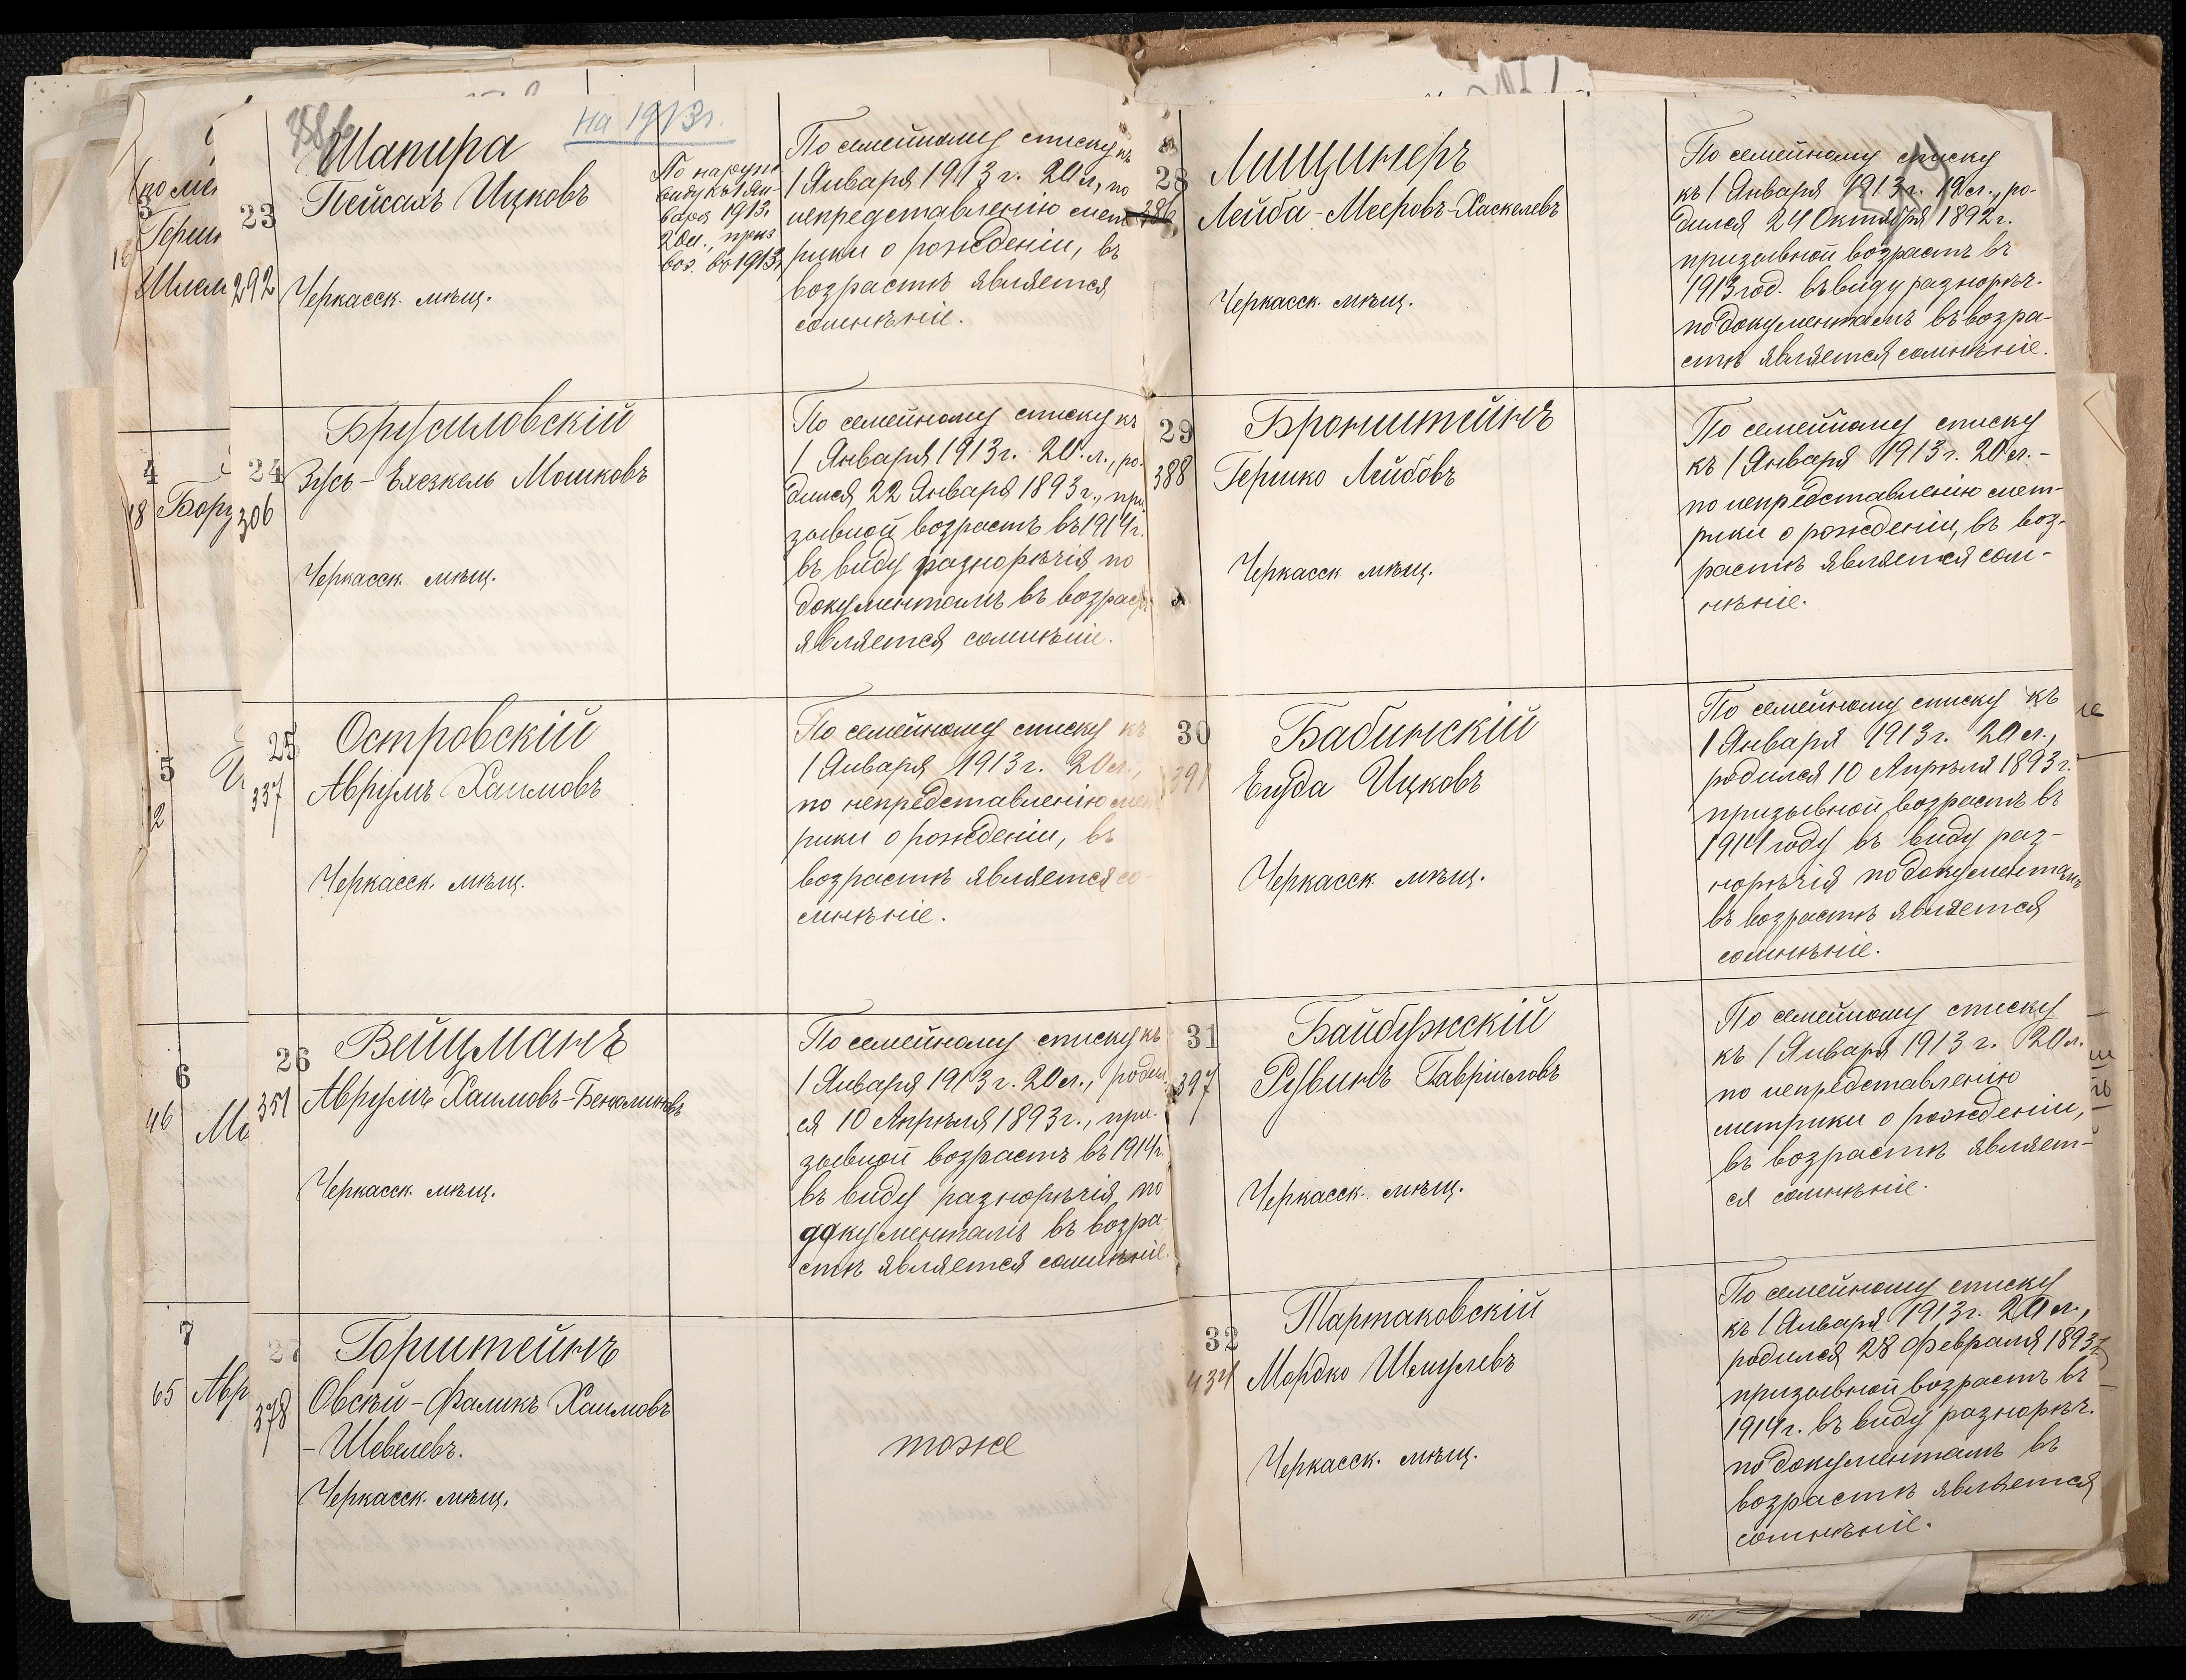 на 1913г.
23
292
Шапира
Пейсахъ Ицковъ
Черкасск. мѣщ.
По наружн.
виду къ 1 Ян-
варя 1913.
20 л., приз
воз. въ 1913
По семейному списку къ
1 Января 1913 г. 20 л, по
непредставленію мет
рики о рожденіи, въ
возрастѣ является
сомнѣніе.
24
306
Брусиловскій
Зусь-Ехезкель Мошковъ
Черкасск. мѣщ.
По семейному списку къ
1 Января 1913 г. 20 л., ро-
дился 22 Января 1893 г., при
зывной возрастъ въ 1914 г.
въ виду разнорѣчія по
документамъ въ возрас
является сомнѣніе.
25
337
Островскій
Аврумъ Хаимовъ
Черкасск. мѣщ.
По семейному списку къ
1 Января 1913 г. 20 л.,
по непредставленію мет
рики о рожденіи, въ
возрастѣ является со-
мнѣніе.
26
351
Вейцманъ
Аврумъ Хаимовъ-Беньяминовъ
Черкасск. мѣщ.
По семейному списку къ
1 Января 1913 г. 20 л., родил
ся 10 Апрѣля 1893 г., при-
зывной возрастъ въ 1914 г.
въ виду разнорѣчія по
документамъ въ возра-
стѣ является сомнѣніе.
27
378
Горштейнъ
Овсѣй-Фаликъ Хаимовъ
-Шевелевъ.
Черкасск. мѣщ.
тоже
28
386
Лищинеръ
Лейба-Мееровъ-Хаскелевъ
Черкасск. мѣщ.
По семейному списку
къ 1 Января 1913 г. 19 л., ро-
дился 24 Октября 1892 г.
призывной возрастъ въ
1913 год. въ виду разнорѣч.
по документамъ въ возра-
стѣ является сомнѣніе.
29
388
Бронштейнъ
Гершко Лейбовъ
Черкасск мѣщ.
По семейному списку
къ 1 Января 1913 г. 20 л. -
по непредставленію мет-
рики о рожденіи, въ воз-
растѣ является сом-
нѣніе.
30
391
Бабинскій
Еуда Ицковъ
Черкасск. мѣщ.
По семейному списку къ
1 Января 1913 г. 20 л.,
родился 10 Апрѣля 1893 г.
призывной возрастъ въ
1914 году въ виду раз-
норѣчія по документамъ
въ возрастѣ является
сомнѣніе.
31
397
Байбужскій
Рувинъ Гавріиловъ
Черкасск. мѣщ.
По семейному списку
къ 1 Января 1913 г. 20 л.
по непредставленію
метрики о рожденіи,
въ возрастѣ являет-
ся сомнѣніе.
32
434
Тартаковскій
Мордко Шмулевъ
Черкасск. мѣщ.
По семейному списку
къ 1 Января 1913 г. 20 л.,
родился 28 Февраля 1893 г
призывной возрастъ въ
1914 г. въ виду разнорѣч.
по документамъ въ
возрастѣ является
сомнѣніе.
4
18
5
12
6
46
7
65